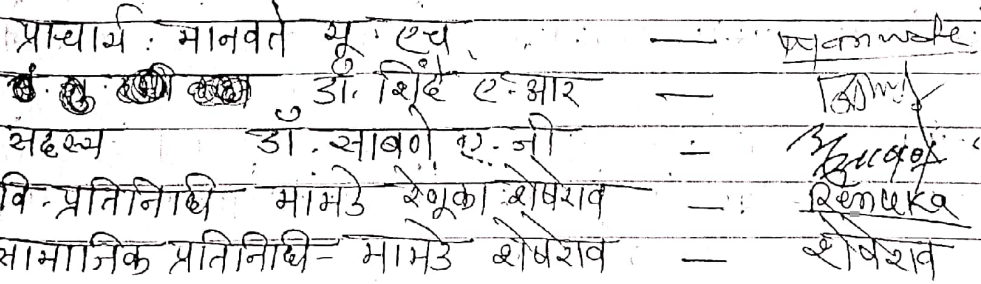 प्राचार्य : मानवते यू. एच —
डॉ. शिंदे ए. आर —
सदस्य डॉ. साबणे ए. जी —
वि. प्रतिनिधि मामडे रेणूका शेषेराव — Renuka
सामाजिक प्रतिनिधी - मामडे शेषेराव — शेषेराव